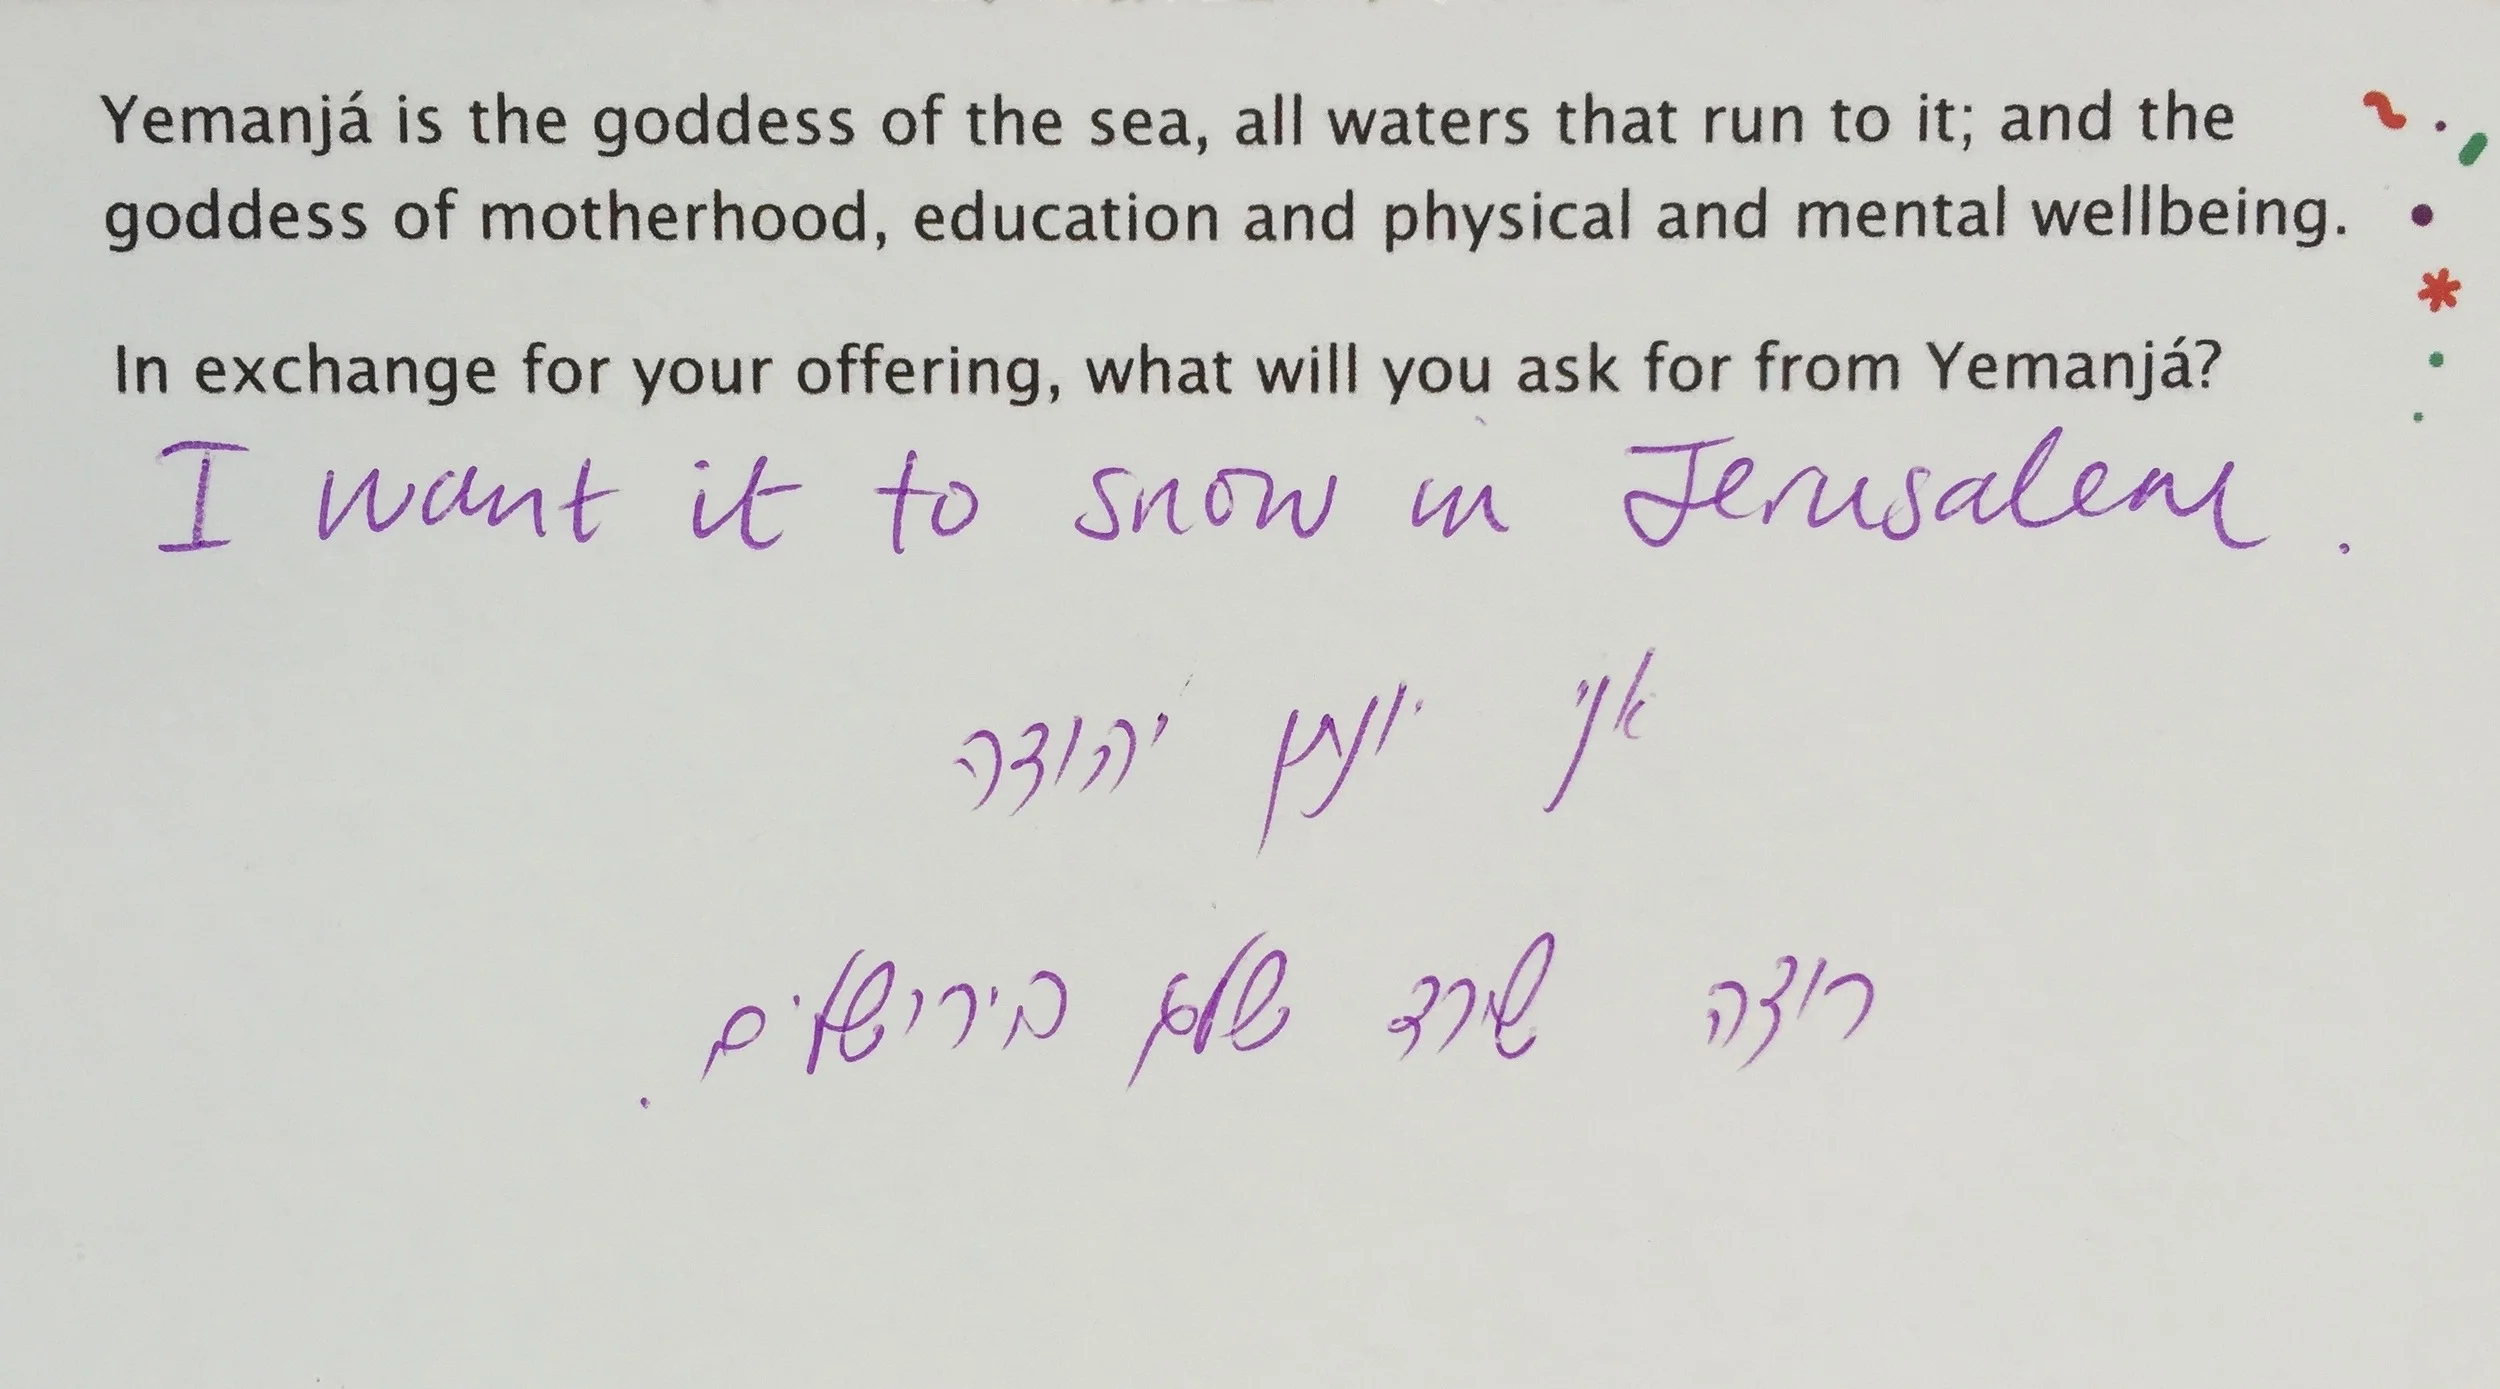 Yemanjá is the goddess of the sea, all waters that run to it; and the
goddess of motherhood, education and physical and mental wellbeing.
In exchange for your offering, what will you ask for from Yemanjá?
I want it to snow in Jerusalem.
אני יונתן יהודה
רוצה שירד שלג בירושלים.